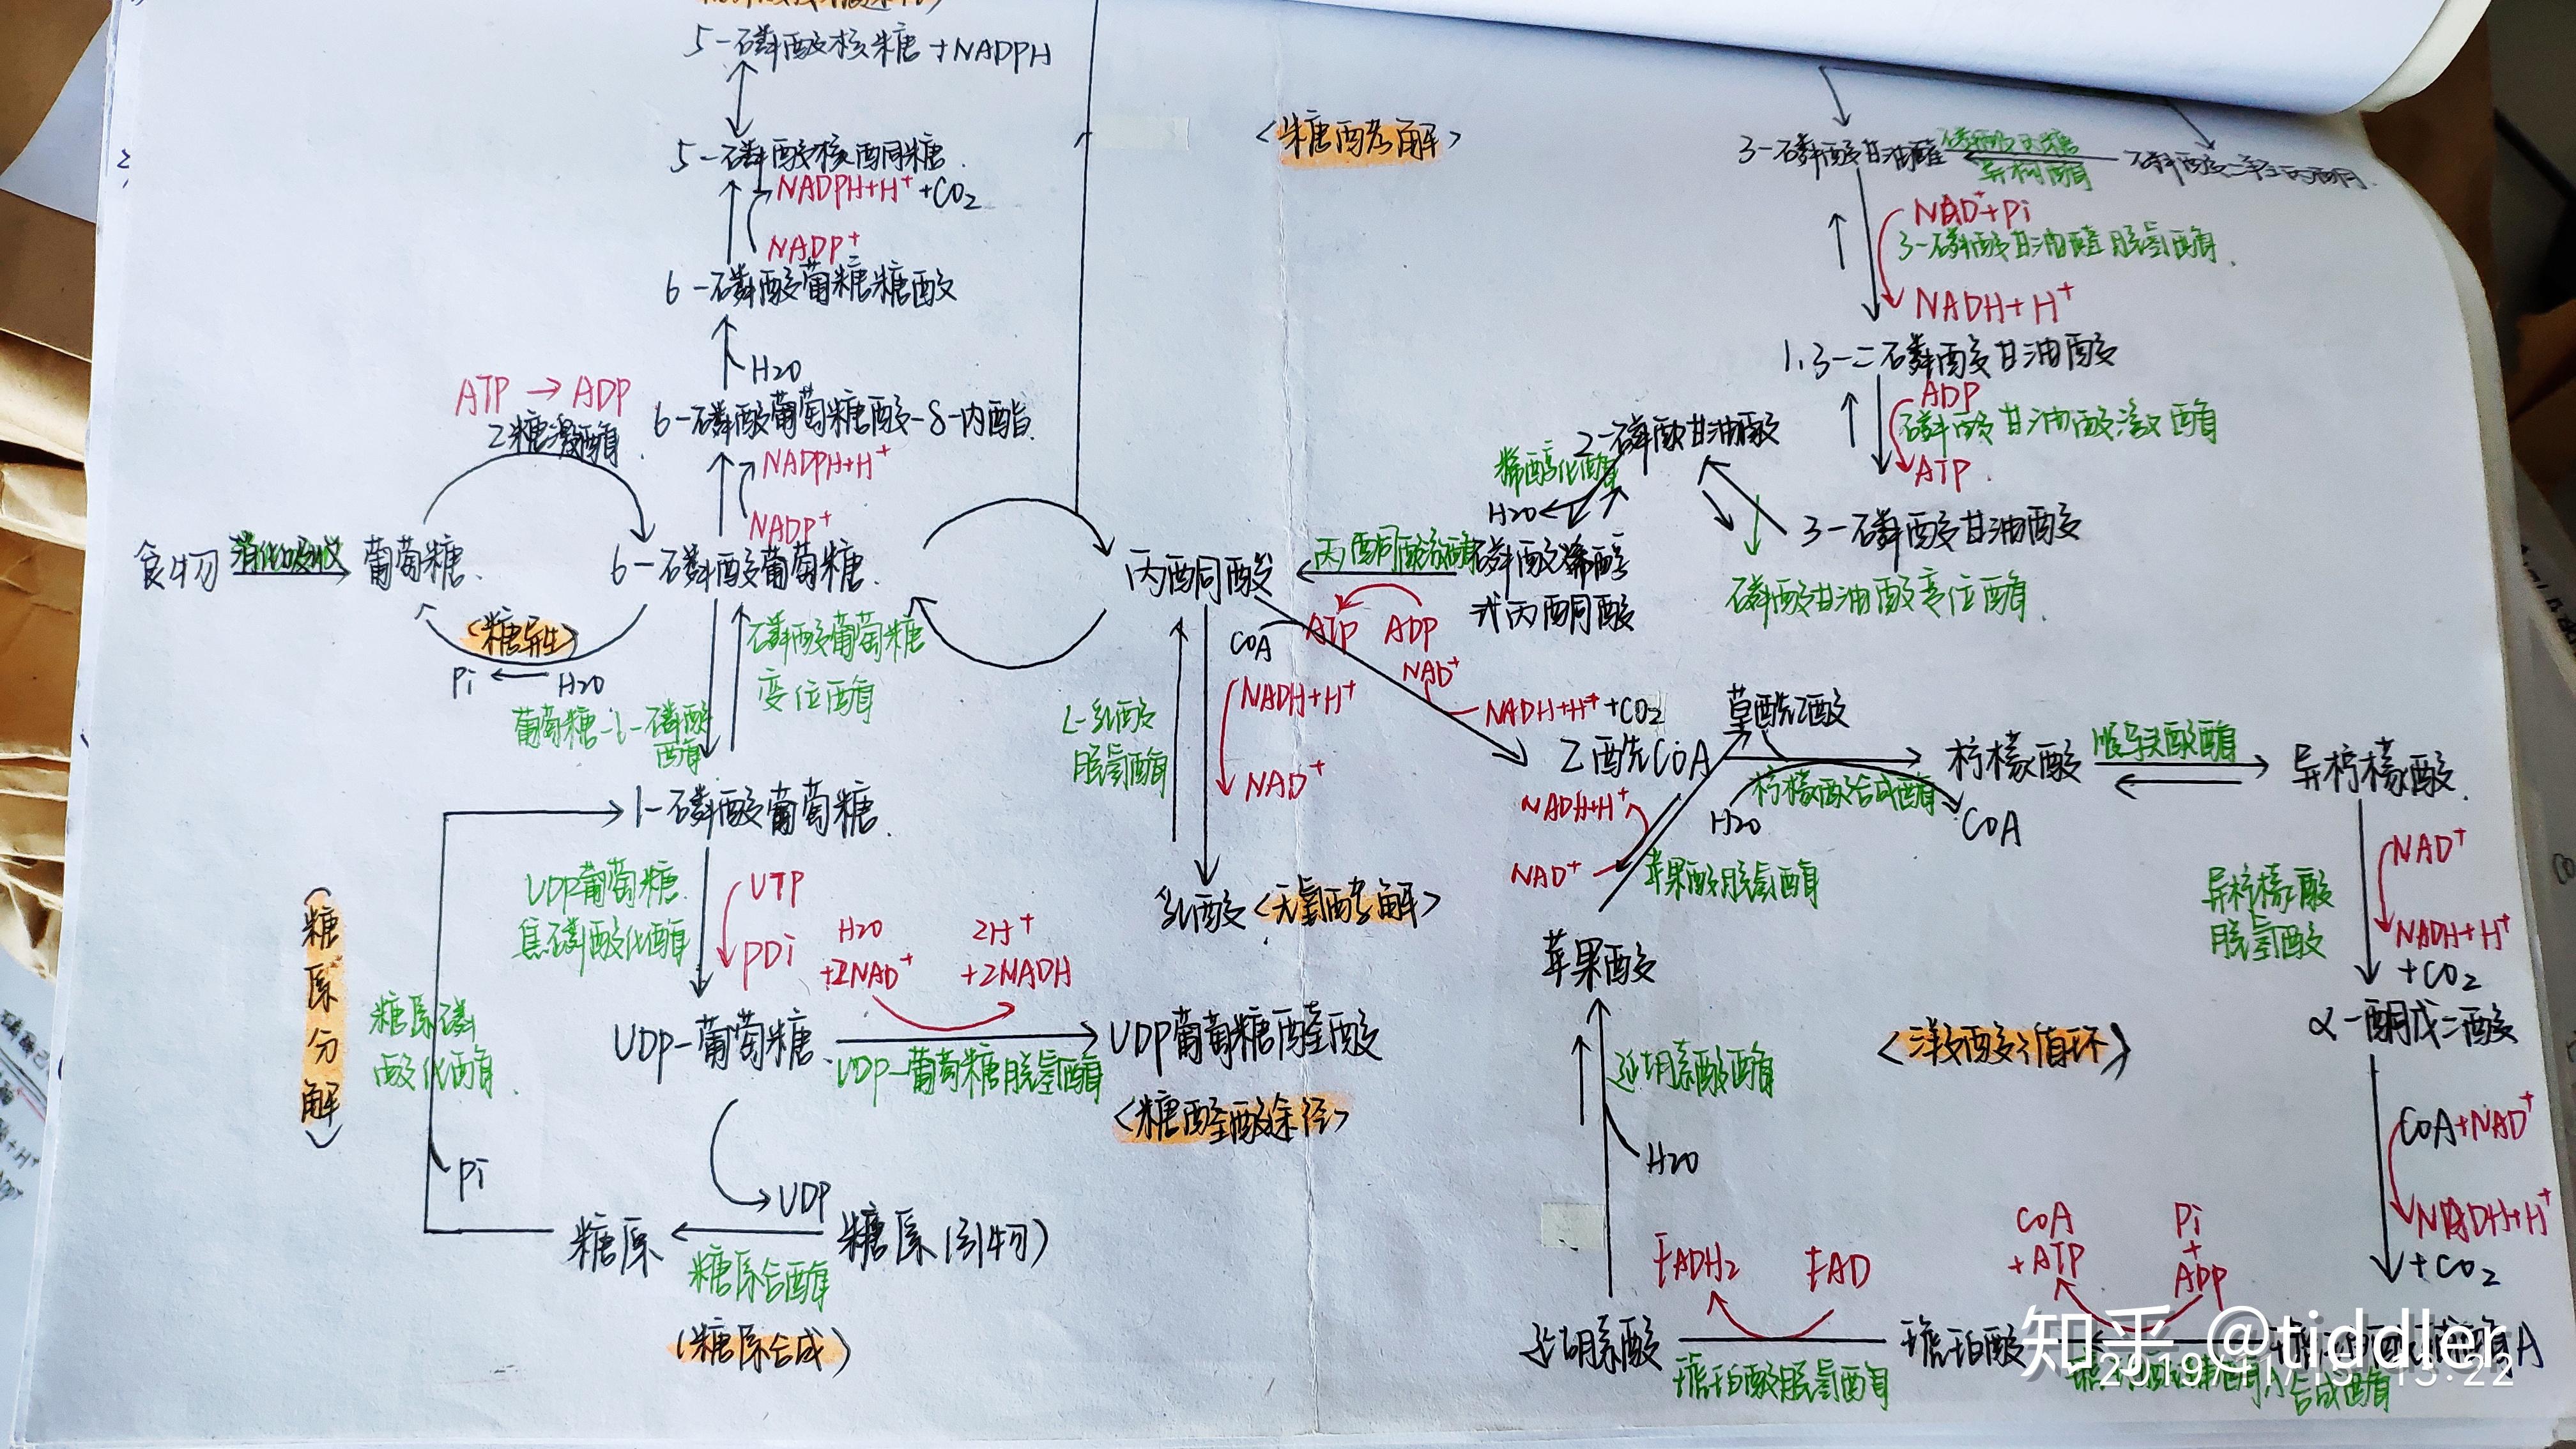 5-磷酸核糖+NADPH
5-磷酸核酮糖
NADPH+H⁺+CO₂
NADP⁺
6-磷酸葡萄糖糖酸
H2O
6-磷酸葡萄糖酸-δ-内酯
NADPH+H⁺
NADP⁺
ATP→ADP
己糖激酶
食物
消化吸收
葡萄糖
6-磷酸葡萄糖
<糖异生>
Pi
H2O
磷酸葡萄糖
变位酶
葡萄糖-6-磷酸
酶
1-磷酸葡萄糖
UDP葡萄糖
焦磷酸化酶
UTP
PPi
H2O
+2NAD⁺
2H⁺
+2NADH
UDP-葡萄糖
UDP-葡萄糖脱氢酶
UDP葡萄糖醛酸
<糖醛酸途径>
<糖原分解>
糖原磷
酸化酶
Pi
UDP
糖原
糖原合酶
糖原(引物)
(糖原合成)
<糖酵解>
3-磷酸甘油醛
磷酸丙糖
异构酶
磷酸二羟丙酮
NAD⁺+Pi
3-磷酸甘油醛脱氢酶
NADH+H⁺
1,3-二磷酸甘油酸
ADP
磷酸甘油酸激酶
ATP
3-磷酸甘油酸
磷酸甘油酸变位酶
2-磷酸甘油酸
烯醇化酶
H2O
磷酸烯醇
式丙酮酸
丙酮酸激酶
ATP
ADP
丙酮酸
L-乳酸
脱氢酶
NADH+H⁺
NAD⁺
乳酸<无氧酵解>
COA
NAD⁺
NADH+H⁺+CO2
乙酰COA
草酰乙酸
柠檬酸合成酶
H2O
COA
柠檬酸
顺乌头酸酶
异柠檬酸
异柠檬酸
脱氢酸
NAD⁺
NADH+H⁺
+CO₂
α-酮戊二酸
COA+NAD⁺
NADH+H⁺
+CO₂
COA
+ATP
Pi
+
ADP
合成酶
琥珀酸
FADH₂
FAD
琥珀酸脱氢酶
延胡索酸
H2O
延胡索酸酶
苹果酸
苹果酸脱氢酶
NADH+H⁺
NAD⁺
<三羧酸循环>
知乎 @tiddler